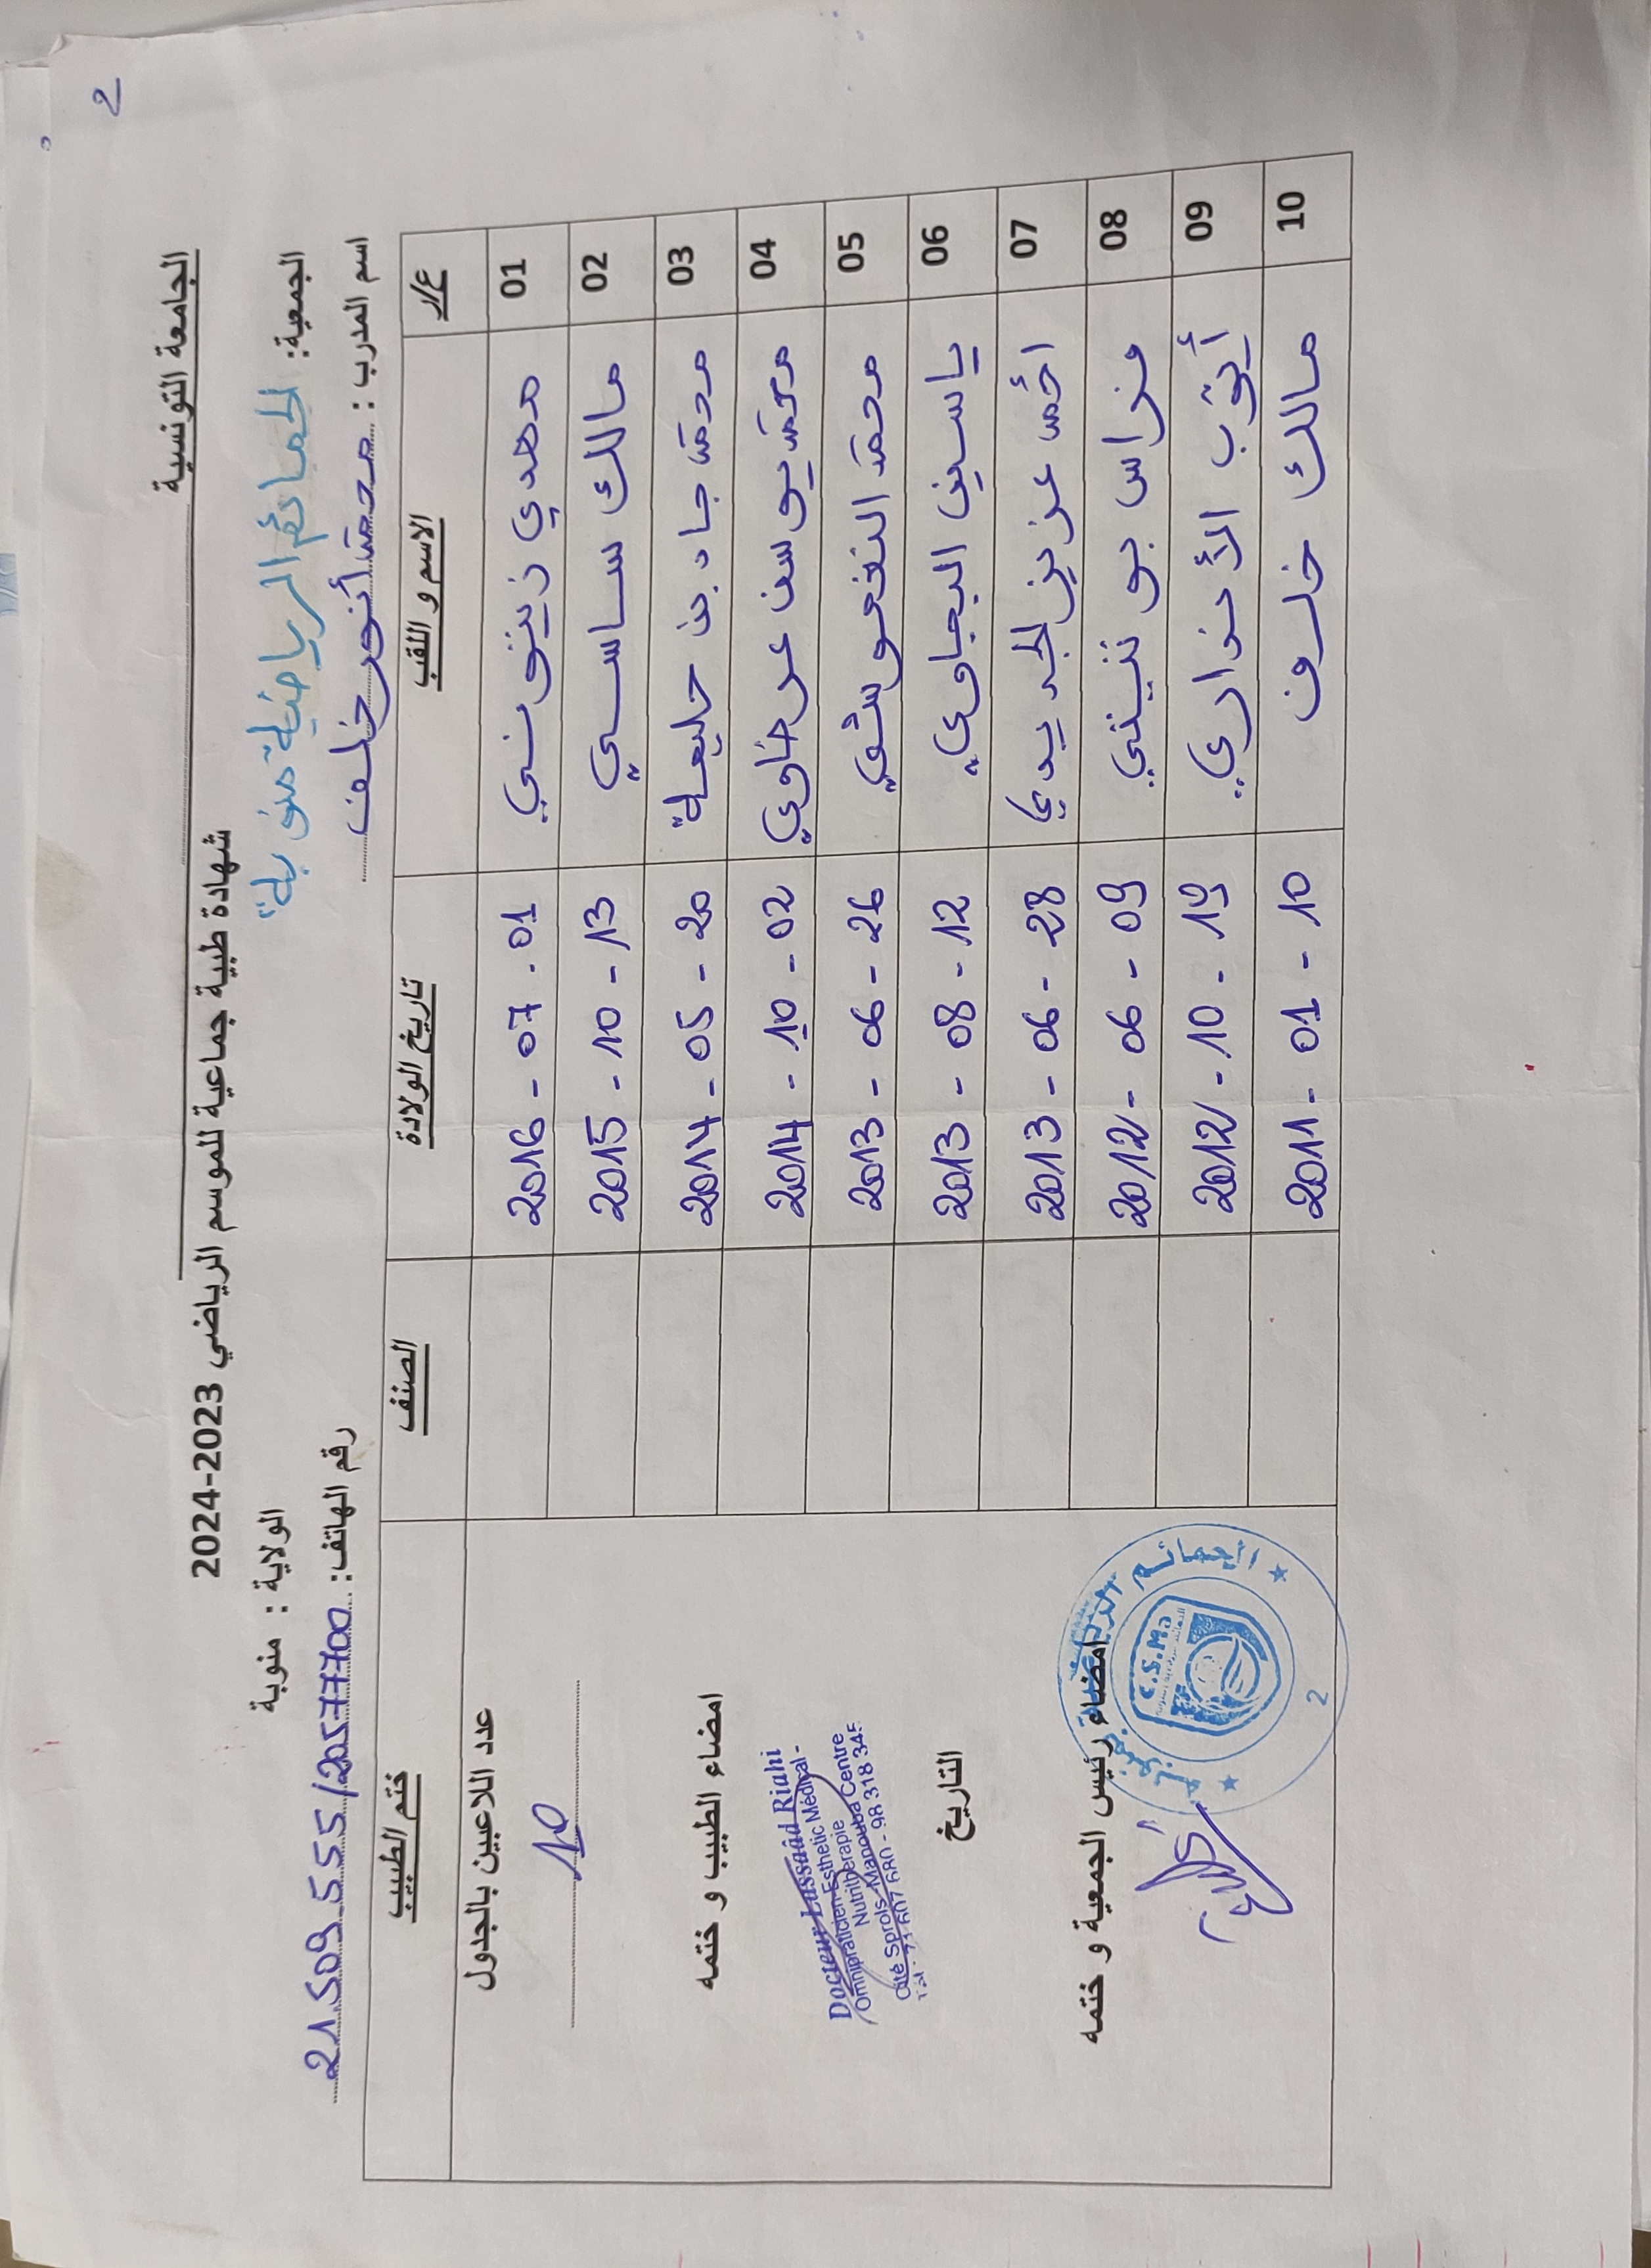 2
الجامعة التونسية
شهادة طبية جماعية للموسم الرياضي 2023-2024
الجمعية: الحمائم الرياضية منوبة
الولاية : منوبة
اسم المدرب : محمد أنور خلف
رقم الهاتف: 21.509.555/20577700
ع/ر الاسم و اللقب تاريخ الولادة الصنف ختم الطبيب
01 مهدي زينوني 2016 - 07 . 01
02 مالك ساسي 2015 - 10 - 13
03 محمد جاد بن حليمة 2014 - 05 - 20
04 محمد يوسف عرضاوي 2014 - 10 - 02
05 محمد 2013 - 06 - 26
06 ياسين البجاوي 2013 - 08 - 12
07 احمد عزيز الجديدي 2013 - 06 - 28
08 فراس بو 2012 - 06 - 09
09 أيوب 2012 - 10 - 19
10 مالك خلف 2011 - 01 - 10
عدد اللاعبين بالجدول
10
امضاء الطبيب و ختمه
Docteur Lassaâd Riahi
Omnipraticien-Esthetic Médical -
Nutritherapie
Cité Sprols-Manouba Centre
Tél : 71 607 680 - 98 318 345
التاريخ
امضاء رئيس الجمعية و ختمه
الحمائم الرياضية
C.S.Ma
2